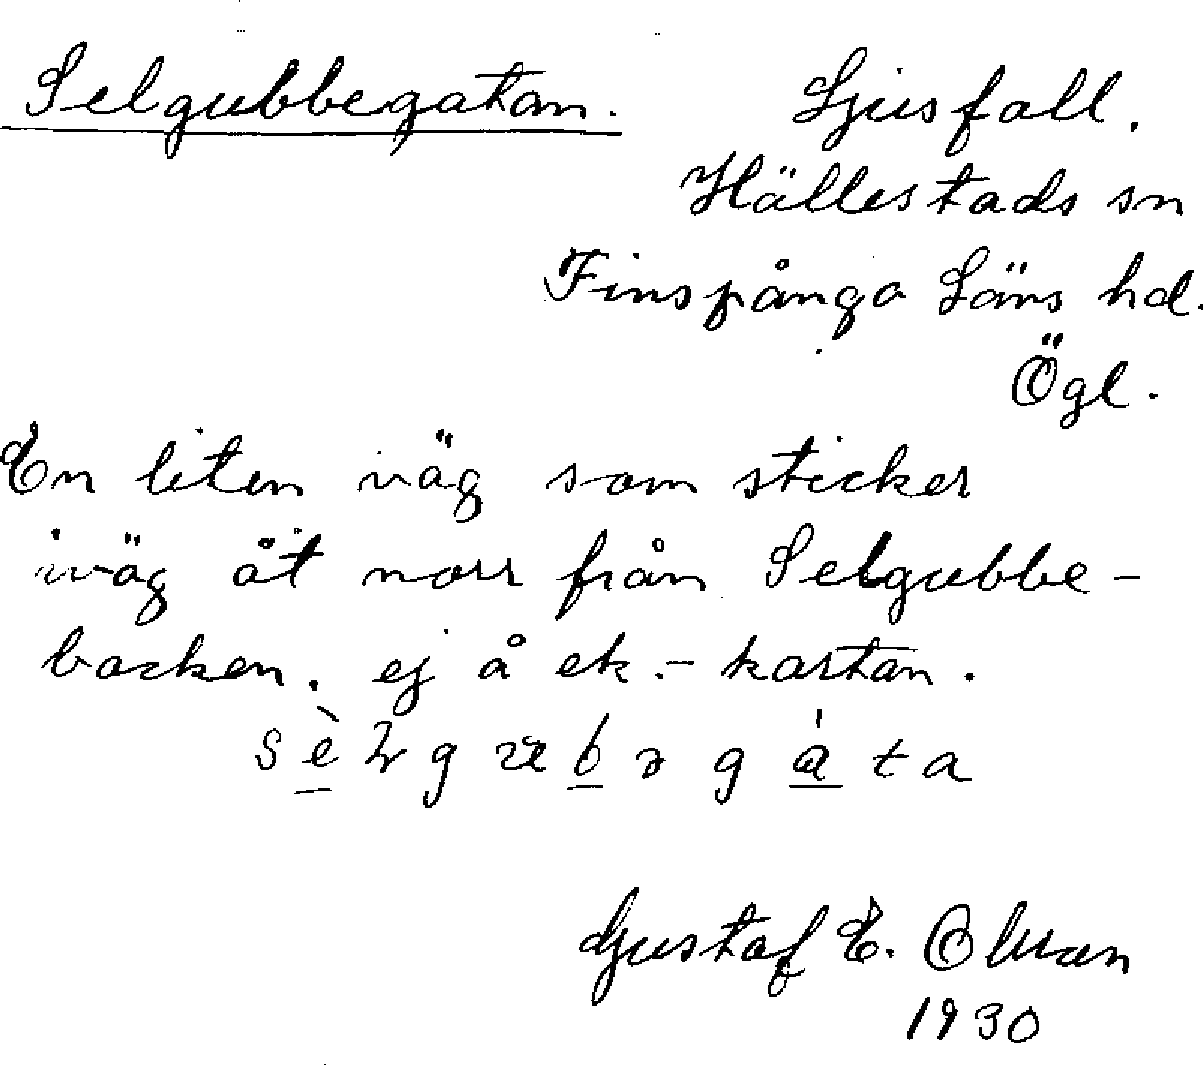 Selgubbegatan. Ljusfall.
Hällestads sn
Finspånga Läns hd.
Ögl.
En liten väg som sticker
iväg åt norr från Selgubbe-
backen. ej å ek.-kartan.
Gustaf E. Olman
1930